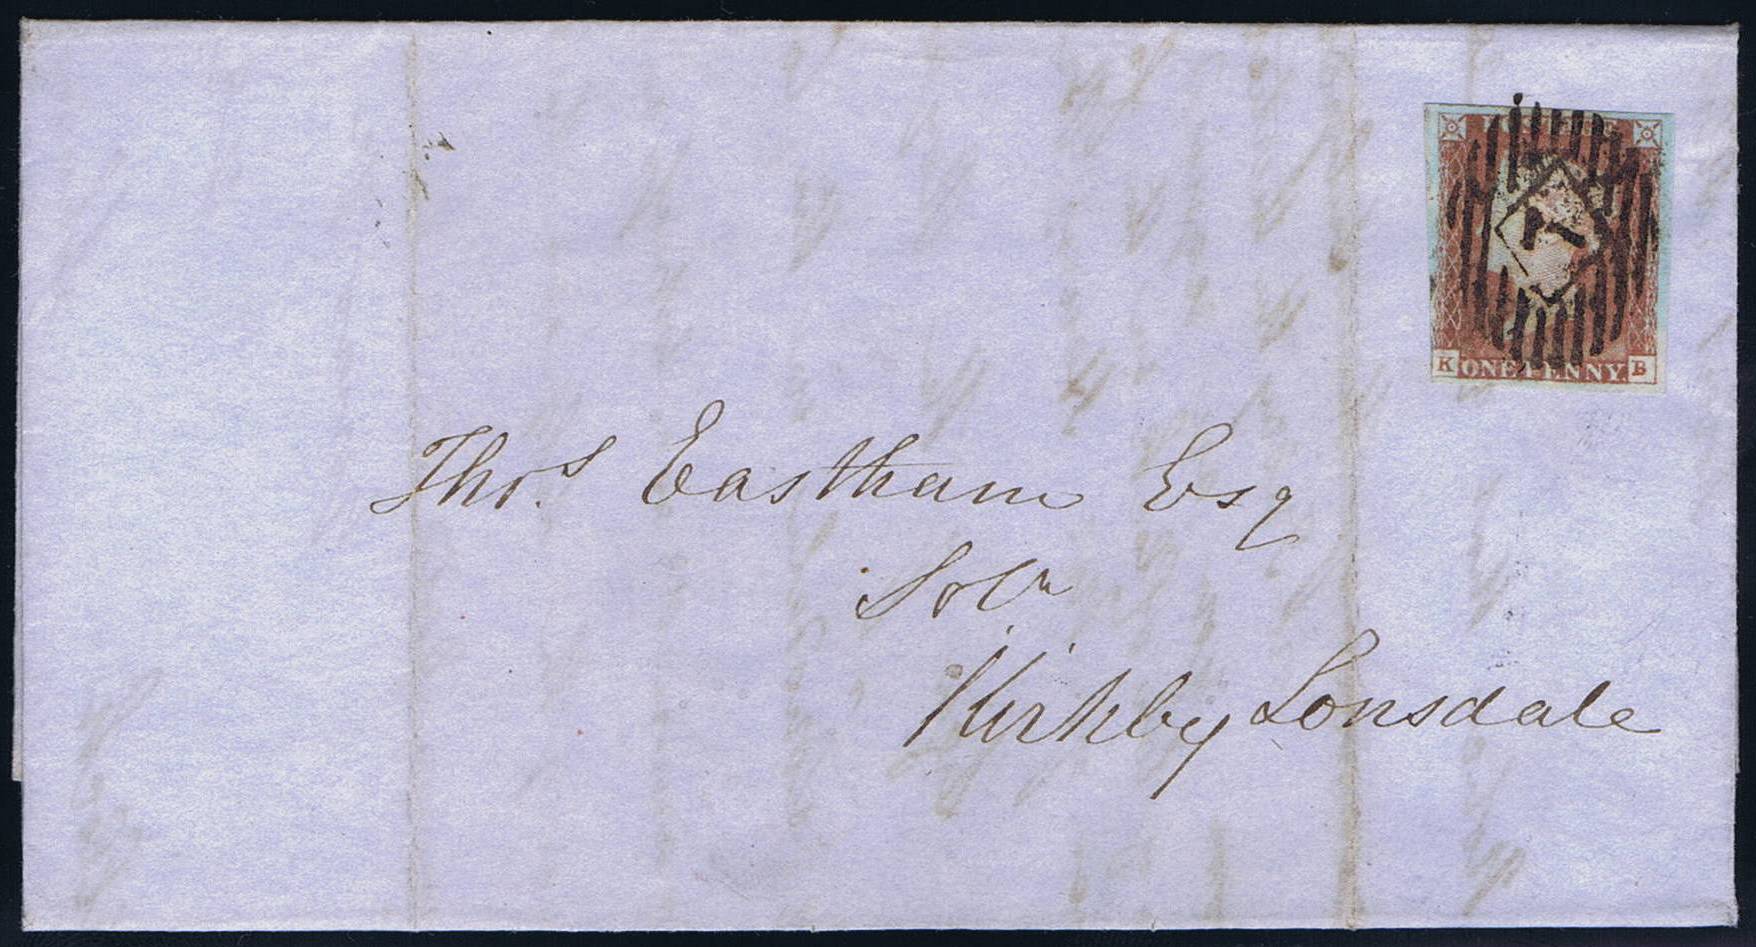 K ONE PENNY. B
7
Thos. Eastham Esq
Solr
Kirkby Lonsdale